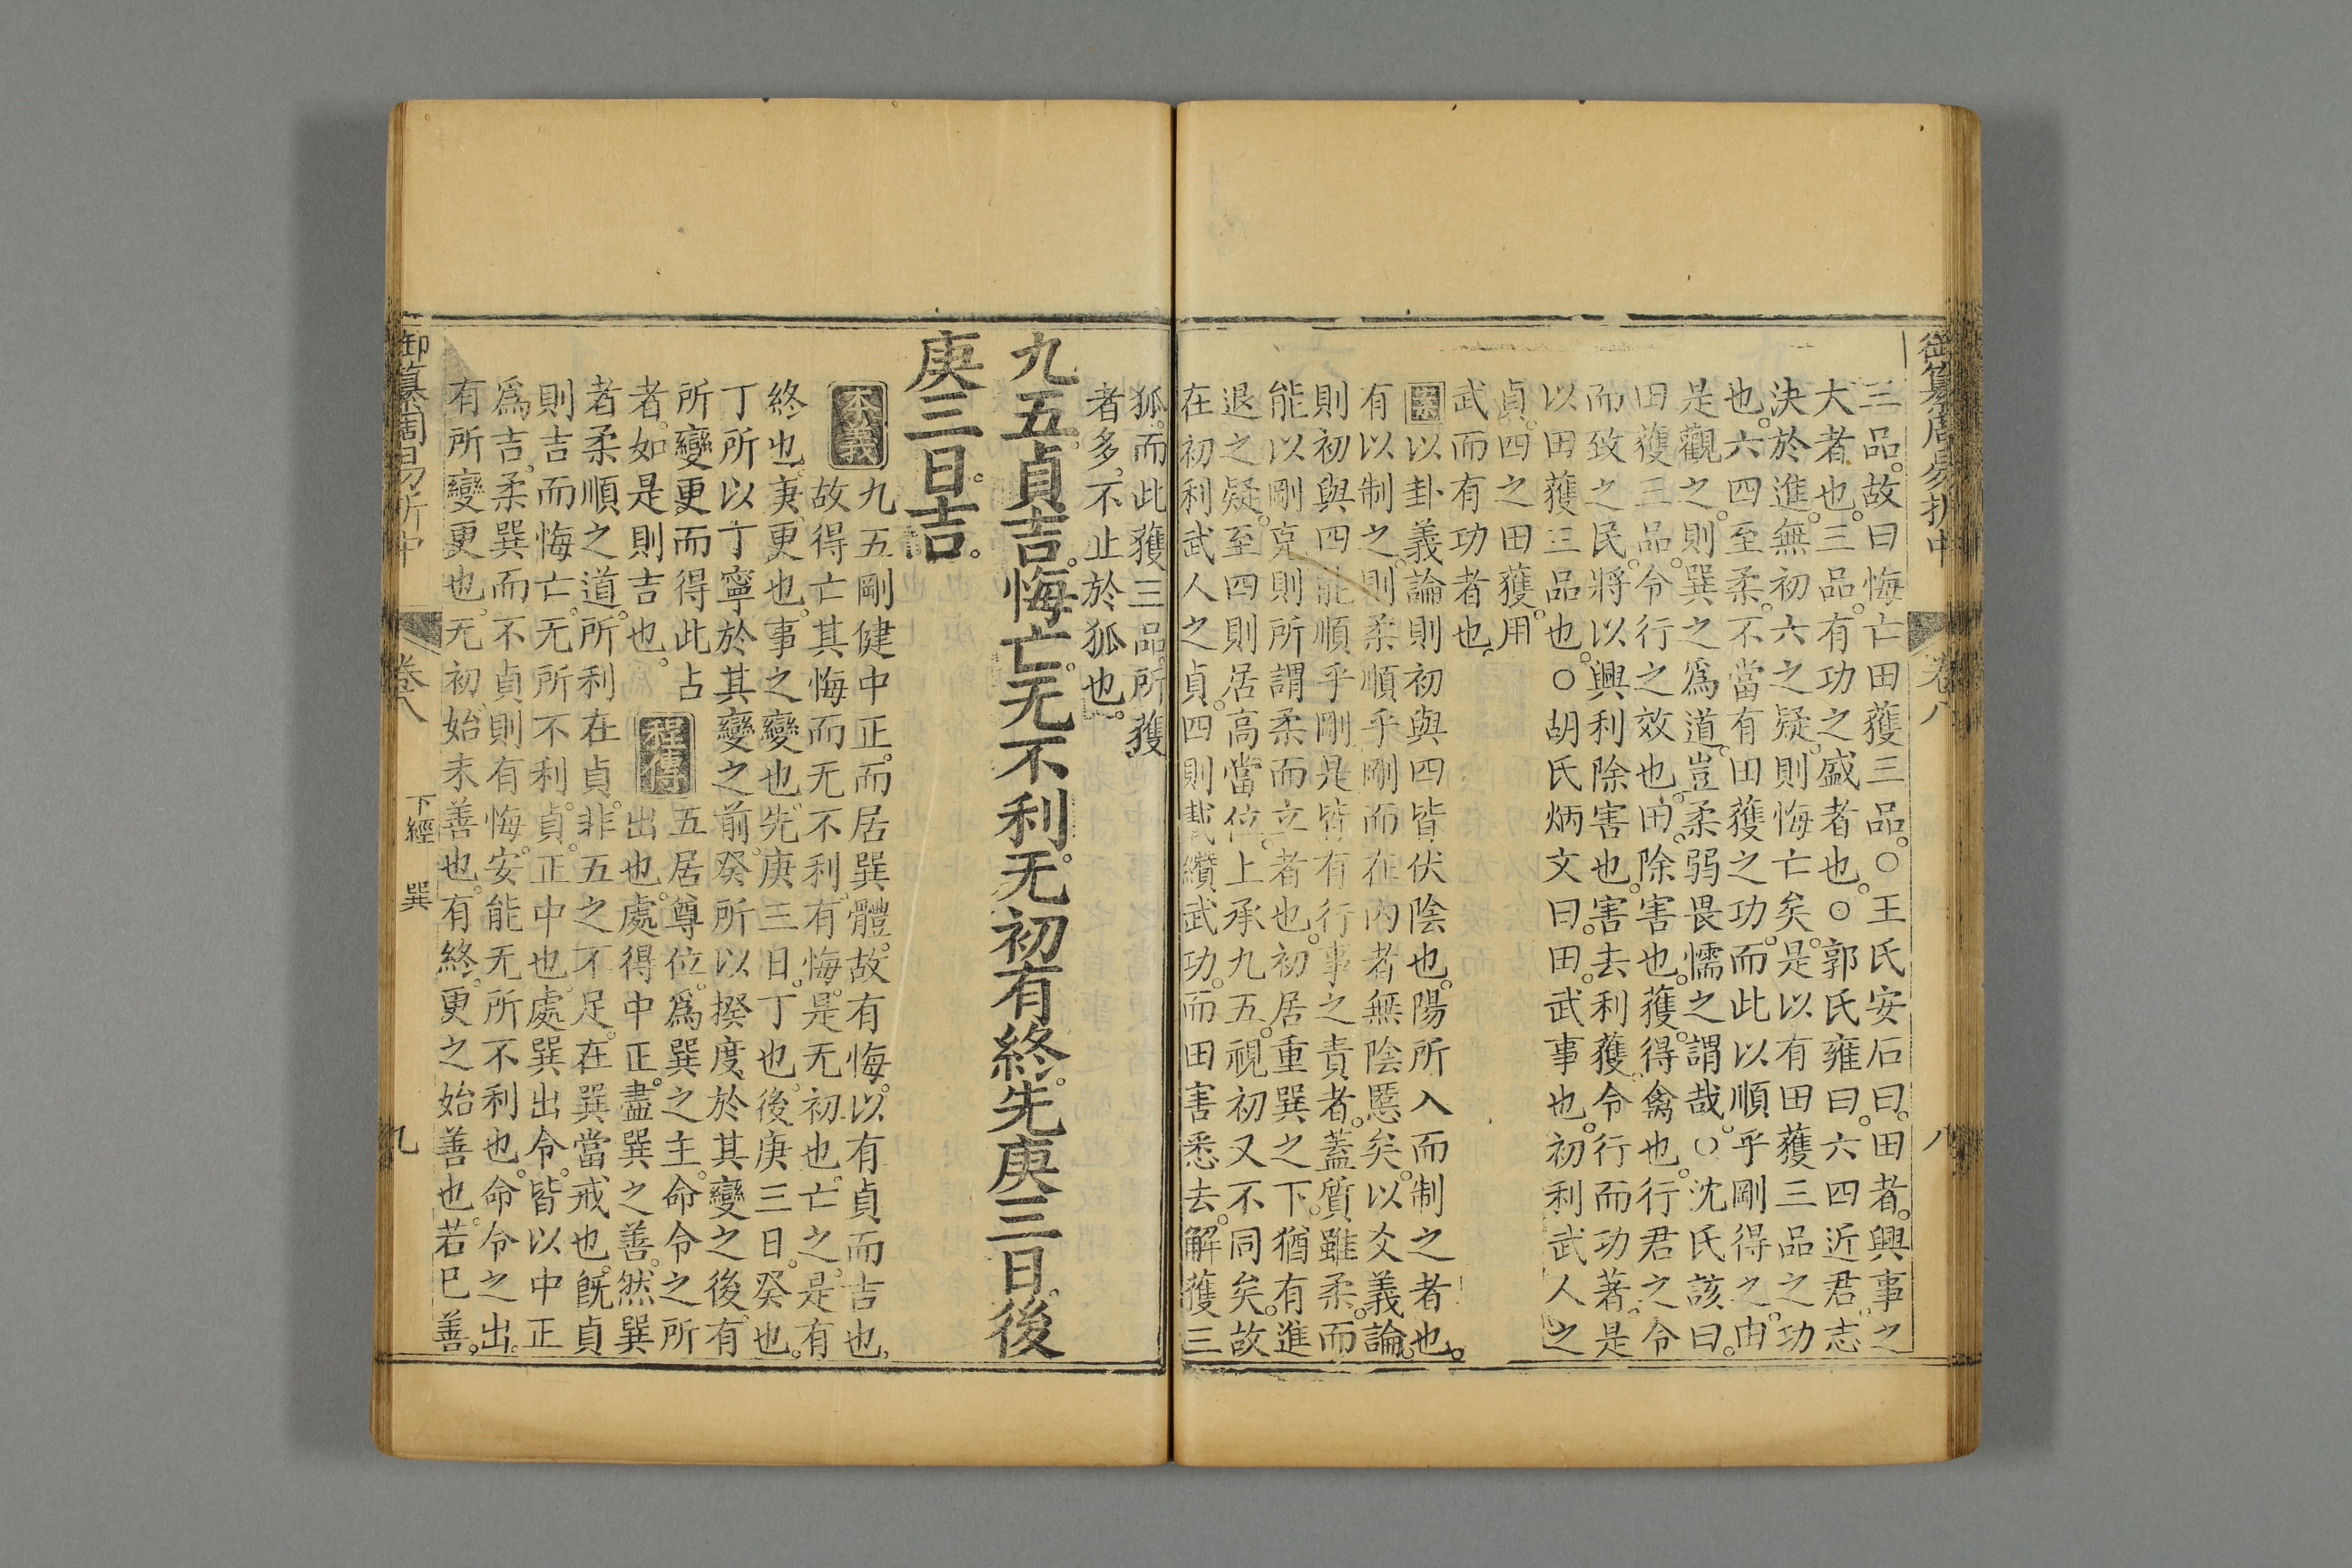 御纂周易折中
卷八
八
三品。故曰悔亡田獲三品。○王氏安石曰。田者。興事之
大者也。三品。有功之盛者也。○郭氏雍曰。六四近君。志
決於進。無初六之疑。則悔亡矣。是以有田獲三品之功
也。六四至柔。不當有田獲之功。而此以順乎剛得之。由
是觀之。則巽之爲道。豈柔弱畏懦之謂哉。○沈氏該曰。
田獲三品。令行之效也。田。除害也。獲。得禽也。行君之令
而致之民。將以興利除害也。害去利獲。令行而功著。是
以田獲三品也。○胡氏炳文曰。田。武事也。初利武人之
貞。四之田獲。用
武而有功者也。
案以卦義論。則初與四皆伏陰也。陽所入而制之者也。
有以制之。則柔順乎剛而在內者無陰慝矣。以爻義論。
則初與四能順乎剛。是皆有行事之責者。蓋質雖柔。而
能以剛克。則所謂柔而立者也。初居重巽之下。猶有進
退之疑。至四則居高當位。上承九五。視初又不同矣。故
在初利武人之貞。四則載纘武功。而田害悉去。解獲三
狐。而此獲三品。所獲
者多。不止於狐也。
九五。貞吉。悔亡。无不利。无初有終。先庚三日。後
庚三日。吉。
本義
九五剛健中正。而居巽體。故有悔。以有貞而吉也。
故得亡其悔而无不利。有悔。是无初也。亡之。是有
終也。庚。更也。事之變也。先庚三日。丁也。後庚三日。癸也。
丁所以丁寧於其變之前。癸所以揆度於其變之後。有
所變更而得此占
者。如是則吉也。
程傳
五居尊位。爲巽之主。命令之所
出也。處得中正。盡巽之善。然巽
者柔順之道。所利在貞。非五之不足。在巽當戒也。旣貞
則吉而悔亡。无所不利。貞。正中也。處巽出令。皆以中正
爲吉。柔巽而不貞則有悔。安能无所不利也。命令之出。
有所變更也。无初。始未善也。有終。更之始善也。若已善。
御纂周易折中
卷八
下經 巽
九